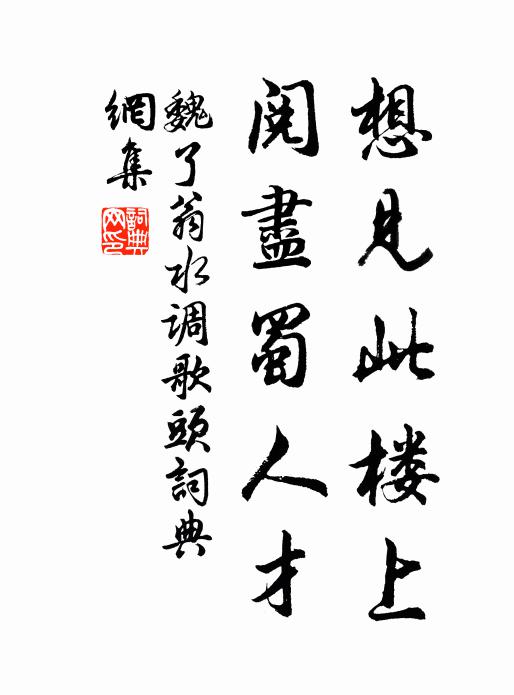 想見此楼上
閱盡蜀人才
魏了翁水调歌頭詞典
網集
詞典网印